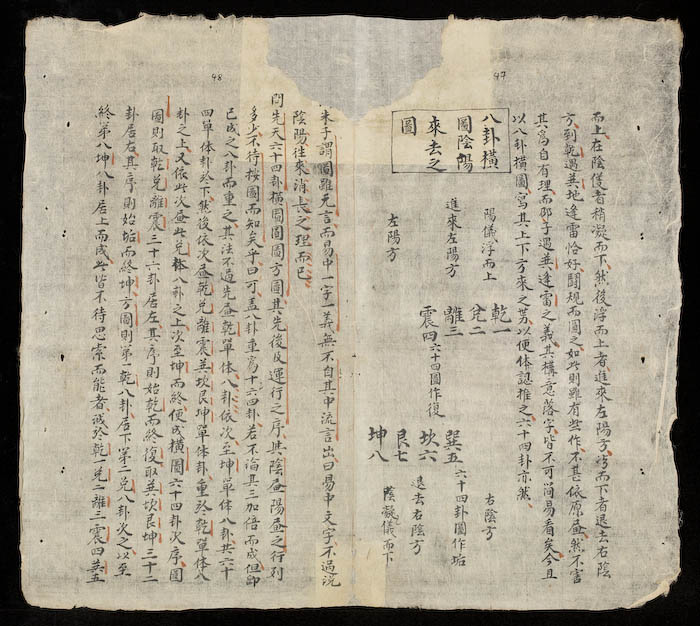 97
而上在陰儀者稍凝而下然後浮而上者進來左陽方凝而下者退去右陰
方到乾遇巽地逢雷恰好鬪規而圓之如此則雖有些作不甚依原畫然不害
其爲自有理而邵子遇巽逢雷之義其構意落字皆不可簡易看矣今且
以八卦橫圖寫其上下方來之勢以便体認推之六十四卦亦然
八卦橫
圖陰陽
來去之
圖
陽儀浮而上
進來左陽方
左陽方
乾一
兌二
離三
震四六十四圖作復
巽五六十四卦圖作垢
坎六
艮七
坤八
右陰方
退去右陰方
陰儀凝而下
98
朱子謂圖雖无言而易中一字一義無不自其中流言出曰易中文字不過說
陰陽徃來消長之理而已
問先天六十四卦橫圖圓圖方圖其先後及運行之序與陰畫陽畫之行列
多少不待按圖而知矣乎曰可盖八卦重爲六十四卦若不論其三加倍而成但即
已成之八卦而重之其法不過先畫乾單体八卦依次至坤單体八卦共六十
四單体卦於下然後依次畫乾兌離震巽坎艮坤單体卦重於乾單体八
卦之上又依此次畫此兌体八卦之上次至坤而終便成橫圖六十四卦次序圓
圖則取乾兌離震三十六卦居左其序則始乾而終復取巽坎艮坤三十二
卦居右其序則始垢而終坤方圖則第一乾八卦居下第二兌八卦次之以至
終第八坤八卦居上而成此皆不待思索而能者誠於乾一兌二離三震四巽五